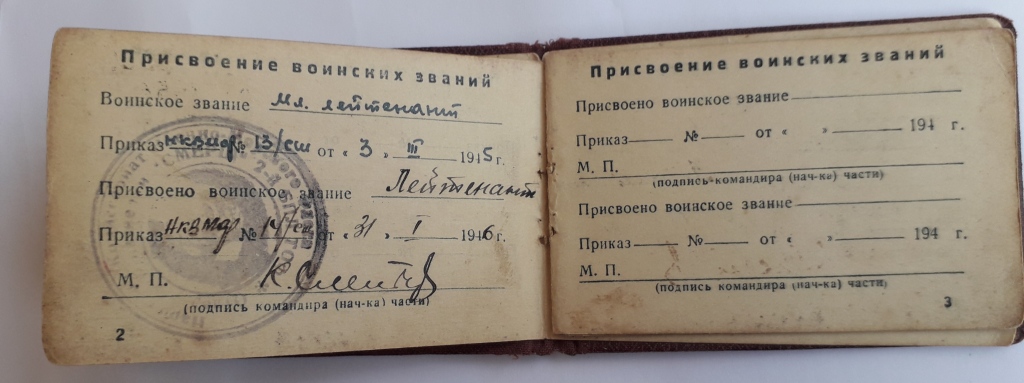 Присвоение воинских званий
Воинское звание Мл. лейтенант
Приказ НКВМФ № 13/сш от « 3 » III 1945 г.
Присвоено воинское звание Лейтенант
Приказ НКВМФ № от « 31 » I 1946 г.
М. П.
(подпись командира (нач-ка) части)
2
СМЕРШ
Присвоение воинских званий
Присвоено воинское звание
Приказ № от « » 194 г.
М. П.
(подпись командира (нач-ка) части)
Присвоено воинское звание
Приказ № от « » 194 г.
М. П.
(подпись командира (нач-ка) части)
3